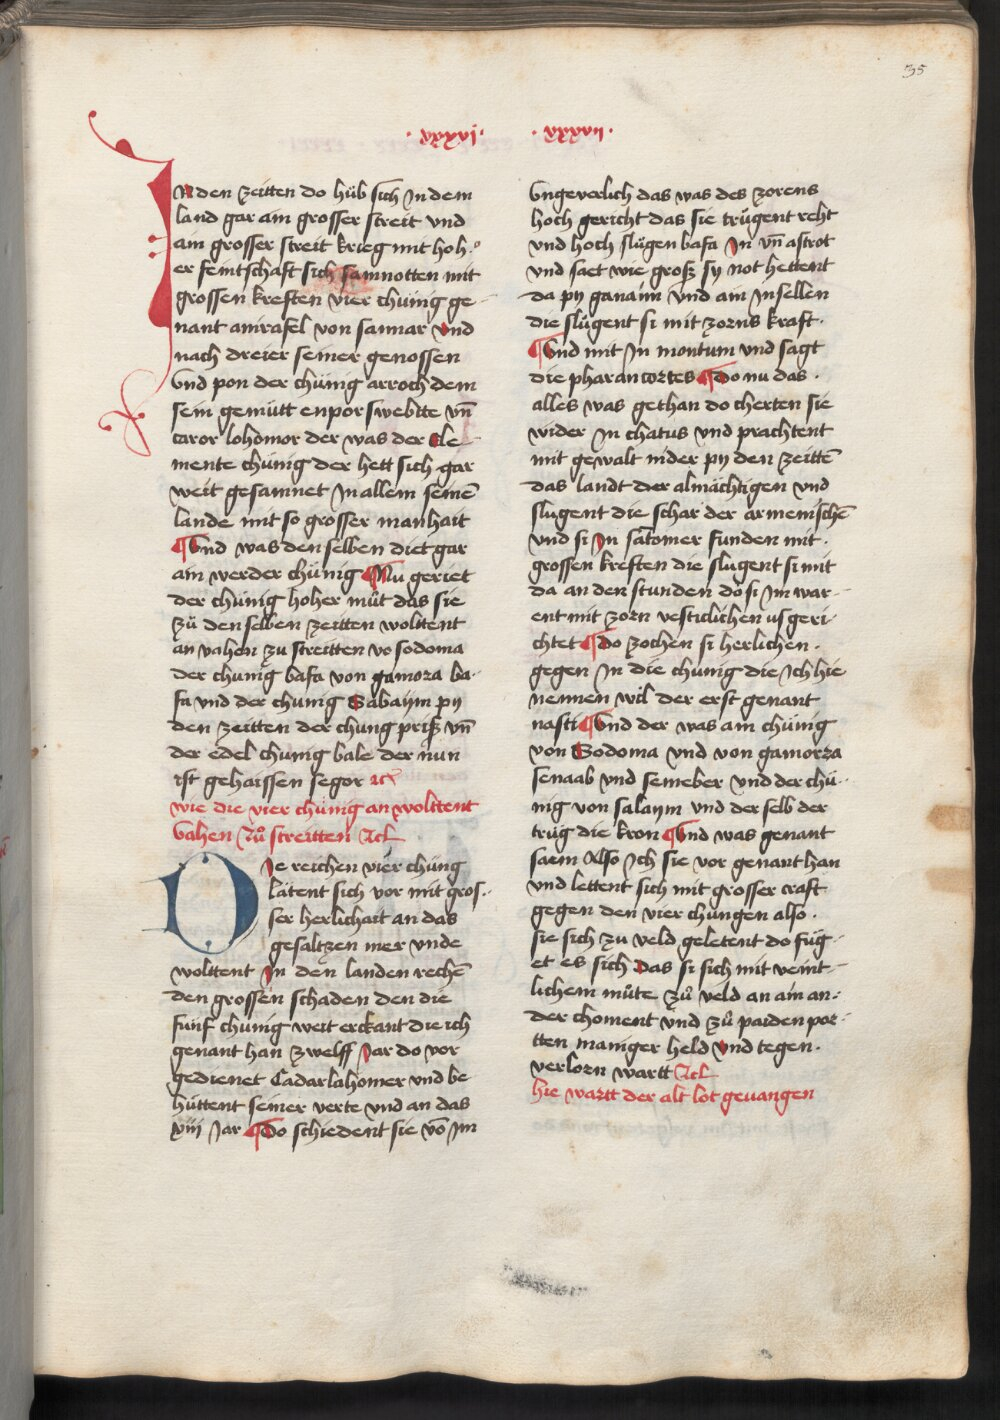 35
· xxxvi · · xxxvii ·
IN den zeitten do hüb sich In dem
land gar ain grosser streit vnd
ain grosser streit krieg mit hoh·
er feintschaft sich samnotten mit
grossen kreften vier chünig ge
nant amrafel von sannar vnd
nach dreier seiner genossen
vnd pon der chünig arroch dem
sein gemütt enpor swebtte vn̄
caror lohomor der was der ele
mente chünig der hett sich gar
weit gesamnet In allem seinē
lande mit so grosser manhait
¶ Vnd was den selben diet gar
ain werder chünig ¶ Nu geriet
der chünig hoher müt das sie
zü den selben zeitten wolttent
an vahen zu streitten vo sodoma
der chunig bafa von gamora ba
fa vnd der chünig Sabaym py
den zeitten der chung priß vn̄
der edel chunig bale der nun
ist gehaissen segor zc
wie die vier chünig an wolttent
vahen Zů streitten Zcl
Die reichen vier chüng
latent sich vor mit gros·
ser herlichait an das
gesaltzen mer vnde
wolttent In den landen rechē
den grossen schaden den die
funf chunig weit erckant die ich
genant han zwelff Jar do vor
gedienet Cadarlahomer vnd be
hüttent seiner verte vnd an das
xiii Jar ¶ Do schiedent sie vō Im
vngeverlich das was des zorens
hoch gericht das sie trügent reht
vnd hoch slügen bafa In vn̄ astrot
vnd saet wie groß sy not hettent
da py ganaim vnd ain Insellen
die slůgent si mit zorns kraft·
¶ Vnd mit In montum vnd sagt
die pharancortes ¶ Do nu das·
alles was gethan do cherten sie
wider In chatus vnd prachtent
mit gewalt nider py den zeittē
das landt der almächtigen vnd
slugent die schar der armenischē
vnd si In satomer funden mit·
grossen kreften die slugent si mit
da an den stunden do si Im war
ent mit zorn vesticlichen us geri
chtet ¶ Do zochen si herlichen·
gegen In die chunig die Ich hie
nennen wil der erst genant
nasti ¶ Vnd der was ain chünig
von Sodoma vnd von gamorra
senaab vnd semeber vnd der chü
nig von salaym vnd der selb der
trüg die kron ¶ Vnd was genant
saem Also Ich sie vor genant han
vnd lettent sich mit grosser craft
gegen den vier chüngen also·
sie sich zu veld geletent do füg
et es sich Das si sich mit veint
lichem můte zů veld an ain an
der choment vnd zů paiden por
tten maniger held Vnd tegen·
verlorn wartt Zcl
hie wartt der alt lot gevangen